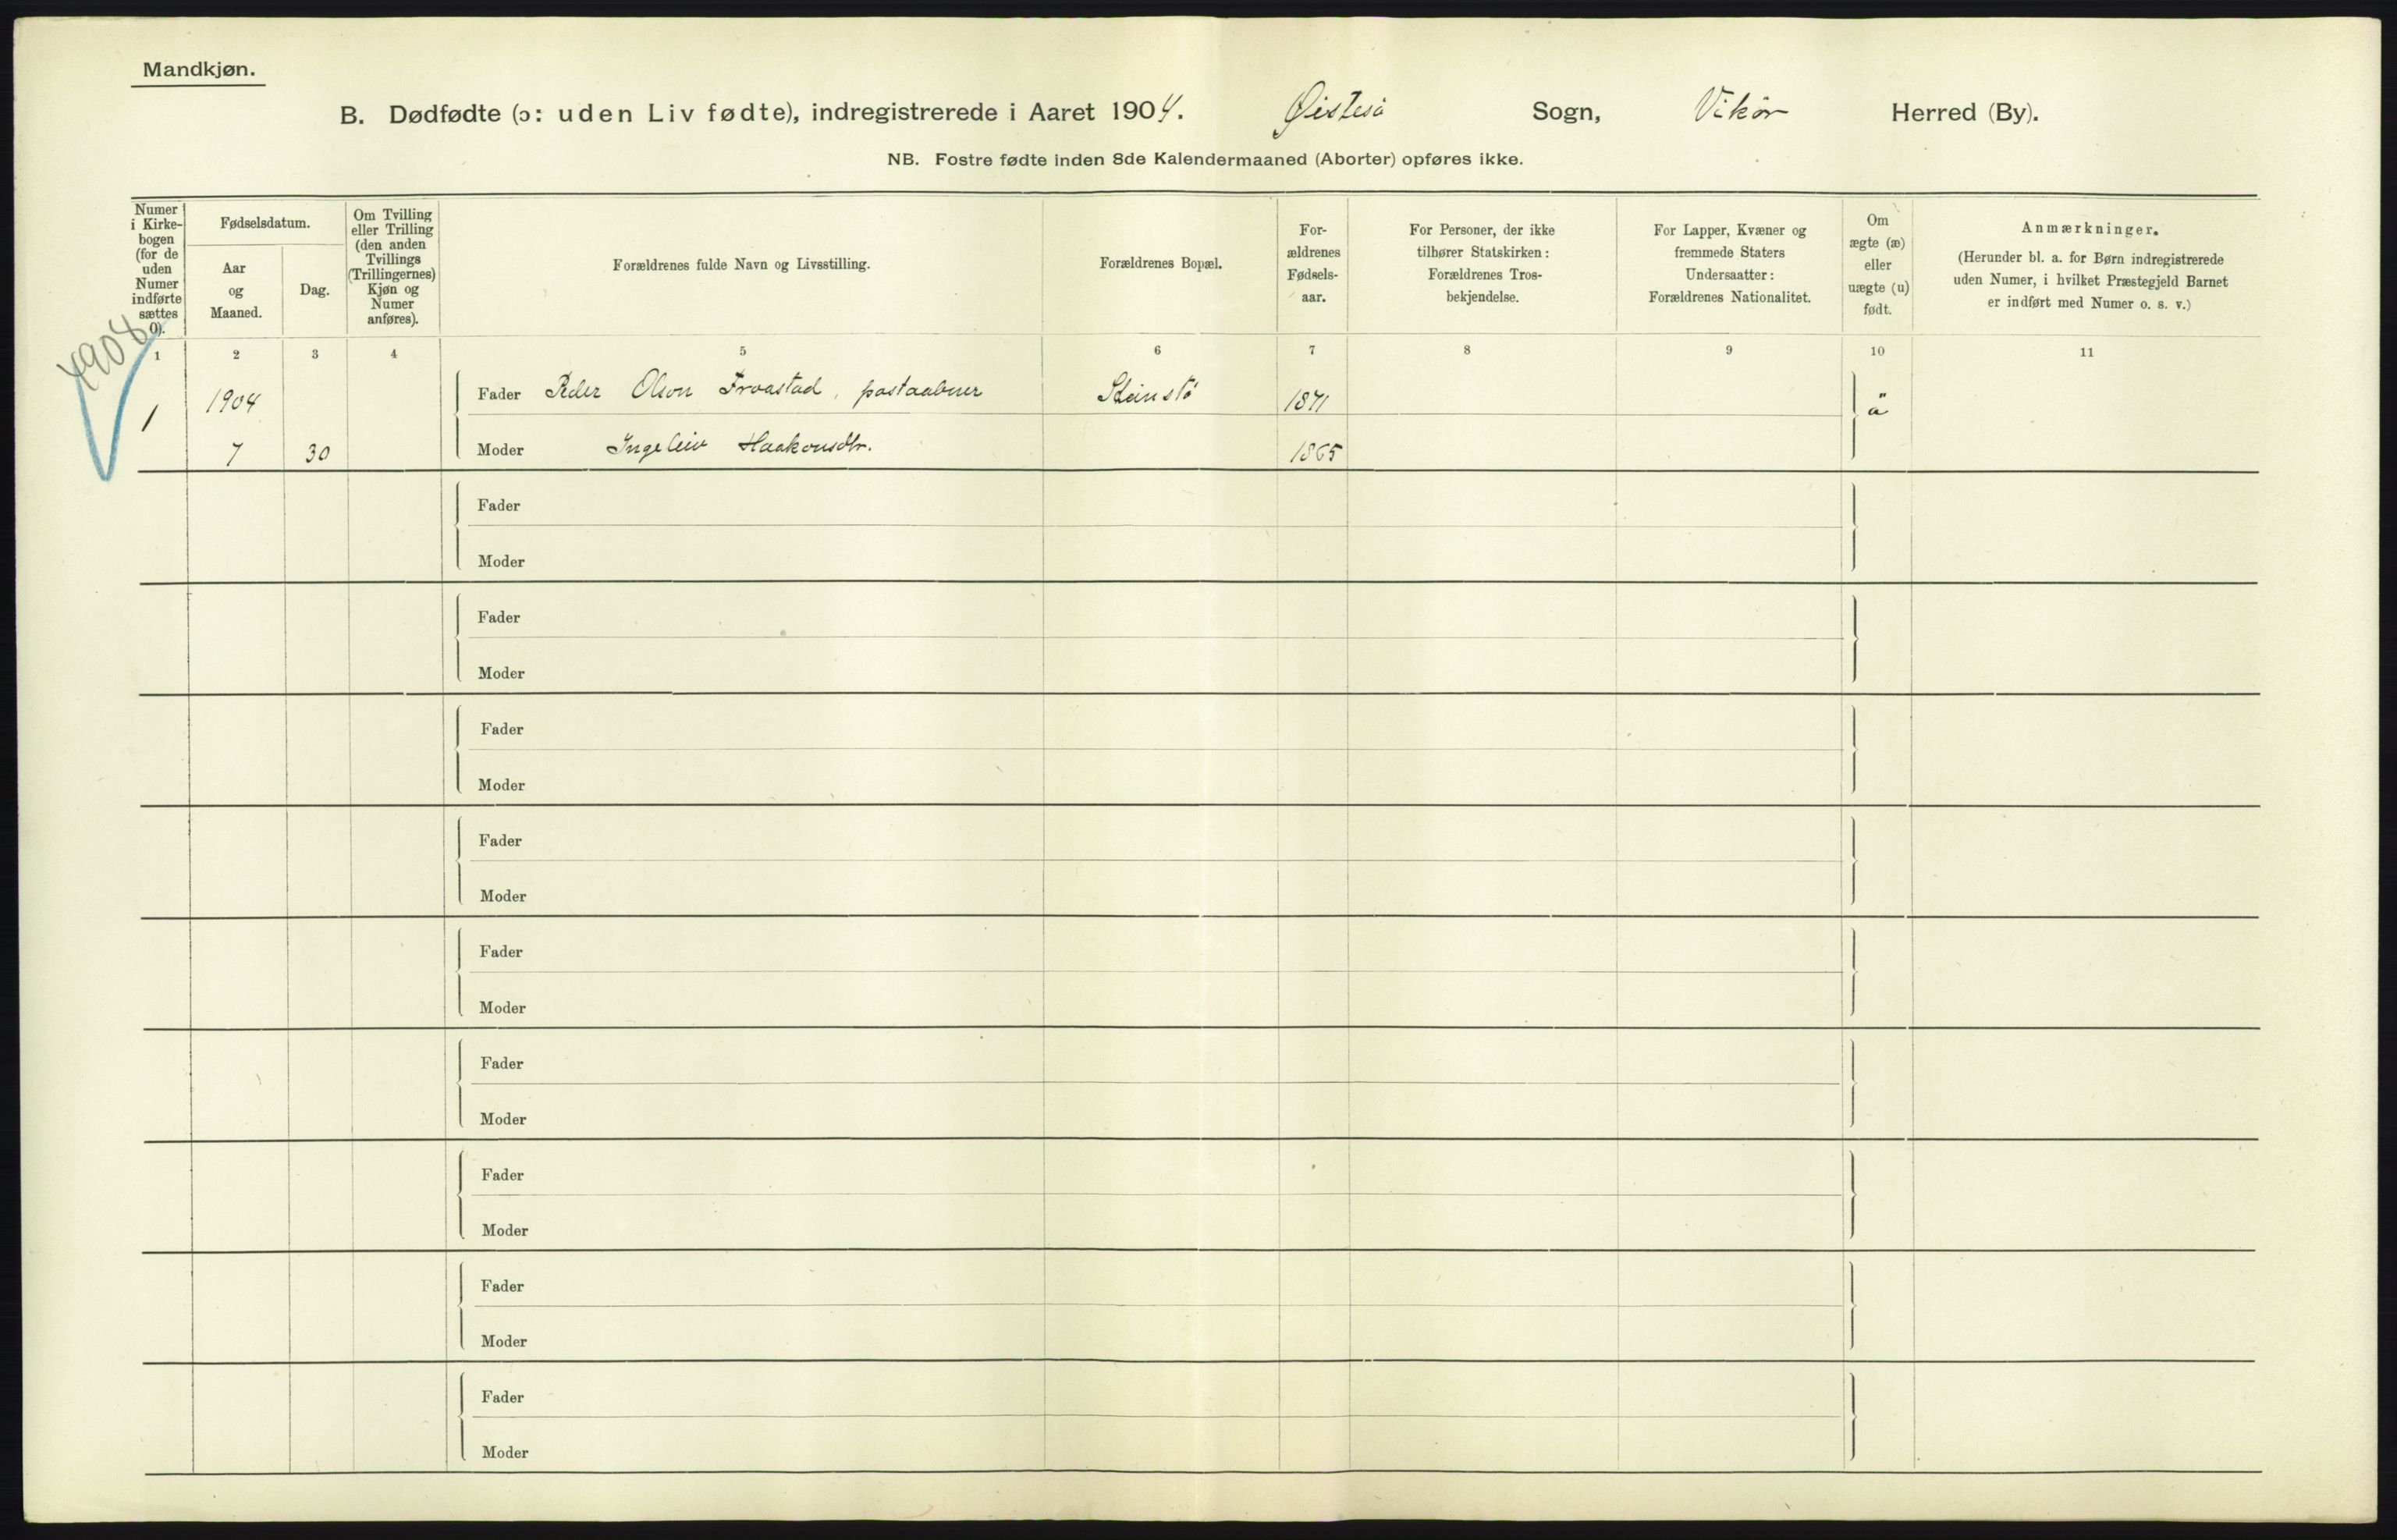 Mandkjøn.
B. Dødfødte (ɔ: uden Liv fødte), indregistrerede i Aaret 1904. Øistesö Sogn, Vikör Herred (By).
NB. Fostre fødte inden 8de Kalendermaaned (Aborter) opføres ikke.
Numer i Kirke-bogen (for de uden Numer indførte sættes 0).
Fødselsdatum.
Aar og Maaned.
Dag.
Om Tvilling eller Trilling (den anden Tvillings (Trillingernes) Kjøn og Numer anføres).
Forældrenes fulde Navn og Livsstilling.
Forældrenes Bopæl.
For-ældrenes Fødsels-aar.
For Personer, der ikke tilhører Statskirken: Forældrenes Tros-bekjendelse.
For Lapper, Kvæner og fremmede Staters Undersaatter: Forældrenes Nationalitet.
Om ægte (æ) eller uægte (u) født.
Anmærkninger.
(Herunder bl. a. for Børn indregistrerede uden Numer, i hvilket Præstegjeld Barnet er indført med Numer o. s. v.)
1 2 3 4 5 6 7 8 9 10 11
4908
1 1904 Fader Peder Olson Froastad, postaabner Steinstö 1871 ä
7 30 Moder Ingeleiv Haakonsdtr. 1865
Fader
Moder
Fader
Moder
Fader
Moder
Fader
Moder
Fader
Moder
Fader
Moder
Fader
Moder
Fader
Moder
Fader
Moder